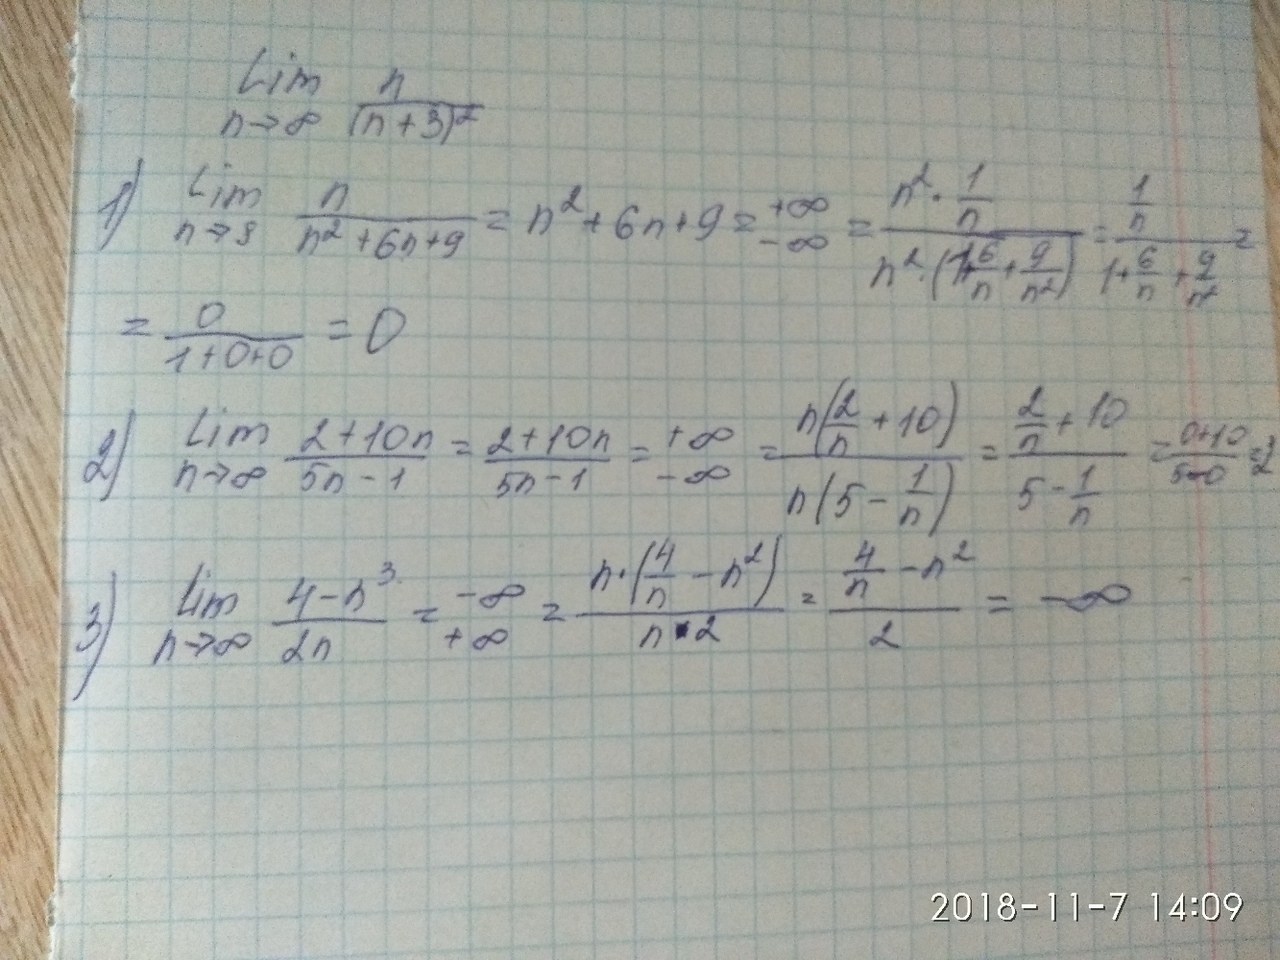 Lim n
n→∞ (n+3)²
1) Lim n/(n²+6n+9) = n²+6n+9 = +∞/-∞ = n²·1/n / n²·(1+6/n+9/n²) = 1/n / 1+6/n+9/n² =
= 0/(1+0+0) = 0
2) Lim n→∞ (2+10n)/(5n-1) = (2+10n)/(5n-1) = +∞/-∞ = n(2/n+10)/n(5-1/n) = 2/n+10 / 5-1/n = 0+10/5-0 = 2
3) Lim n→∞ (4-n³)/2n = -∞/+∞ = n·(4/n-n²)/n·2 = 4/n-n² / 2 = -∞
2018-11-7 14:09